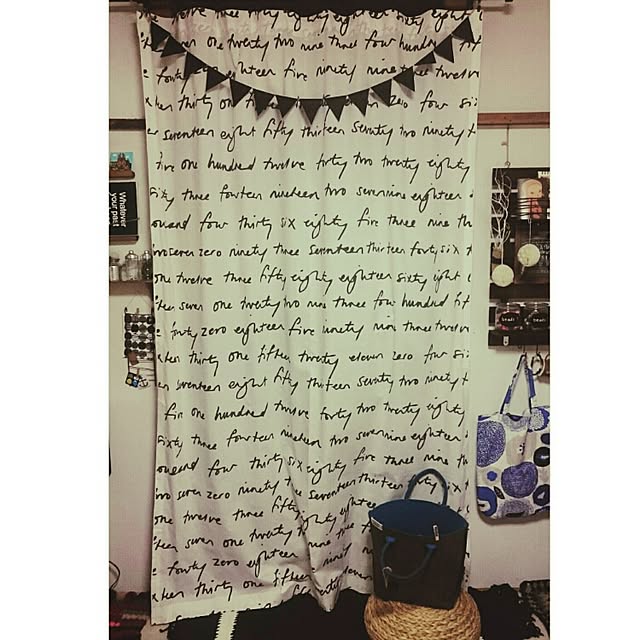 three fifty eighty eighteen sixty eighty
one twenty two nine three four hund
forty eighteen five ninety nine three twelve
thirty on zero four si
seventeen eight fifty thirteen seventy two ninety t
five one hundred twelve forty two twenty eighty
sixty three fourteen nineteen two seven nine eighteen
ousand four thirty six eighty five three nine th
wo seven zero ninety three seventeen thirteen forty six t
one twelve three fifty eighty eighteen sixty eight
teen seven one twenty two nine three four hundred fif
forty zero eighteen five ninety nine three twelve
teen thirty one fifteen twenty eleven zero four si
seventeen eight fifty thirteen seventy two ninety t
five one hundred twelve forty two twenty eighty
sixty three fourteen nineteen two seven nine eighteen
ousand four thirty six eighty five three nine th
wo seven zero ninety three seventeen thirteen forty six t
one twelve three fifty eighty
teen seven one twenty two nine three
forty zero eighteen five ninety
teen thirty one fifteen
Whatever
your past